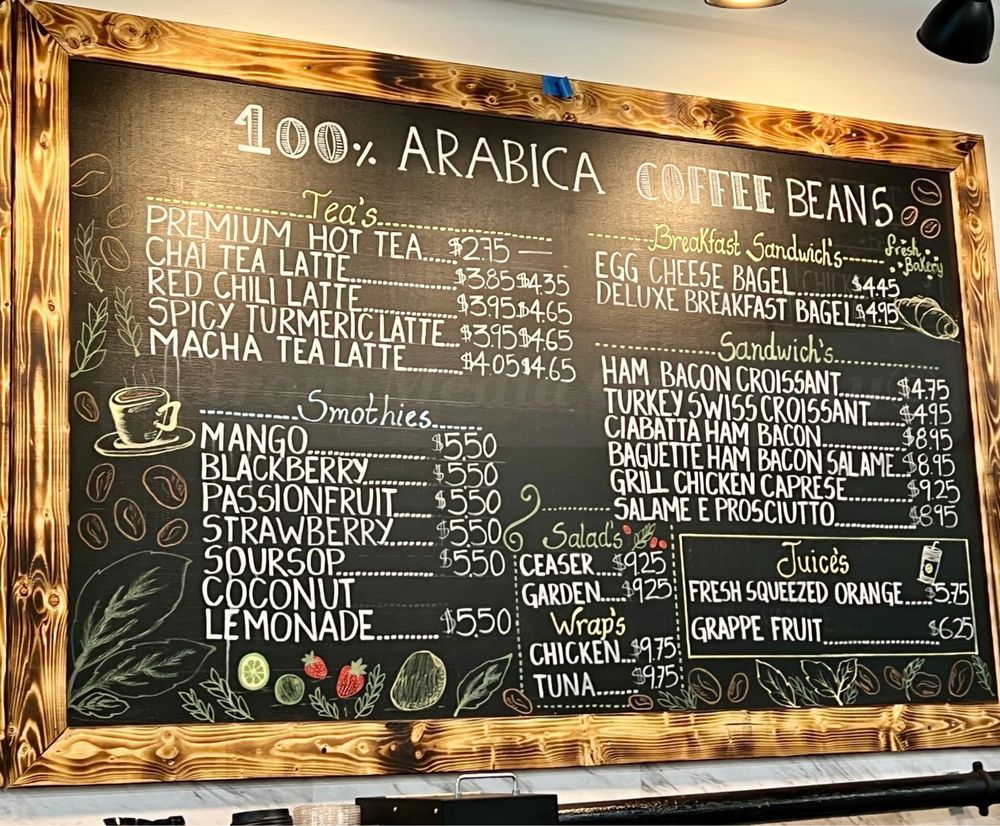 100% ARABICA COFFEE BEANS
Tea's
PREMIUM HOT TEA.....$2.75 —
CHAI TEA LATTE..............$3.85 $4.35
RED CHILI LATTE.............$3.95 $4.65
SPICY TURMERIC LATTE...$3.95 $4.65
MACHA TEA LATTE........$4.05 $4.65
Smothies
MANGO..............$5.50
BLACKBERRY........$5.50
PASSIONFRUIT.....$5.50
STRAWBERRY......$5.50
SOURSOP............$5.50
COCONUT
LEMONADE.........$5.50
Breakfast Sandwich's
Fresh
Bakery
EGG CHEESE BAGEL........$4.45
DELUXE BREAKFAST BAGEL..$4.95
Sandwich's
HAM BACON CROISSANT........$4.75
TURKEY SWISS CROISSANT.....$4.95
CIABATTA HAM BACON..........$8.95
BAGUETTE HAM BACON SALAME..$8.95
GRILL CHICKEN CAPRESE.......$9.25
SALAME E PROSCIUTTO.........$8.95
Salad's
CEASER....$9.25
GARDEN.....$9.25
Wrap's
CHICKEN...$9.75
TUNA.......$9.75
Juice's
FRESH SQUEEZED ORANGE.....$5.75
GRAPPE FRUIT..................$6.25